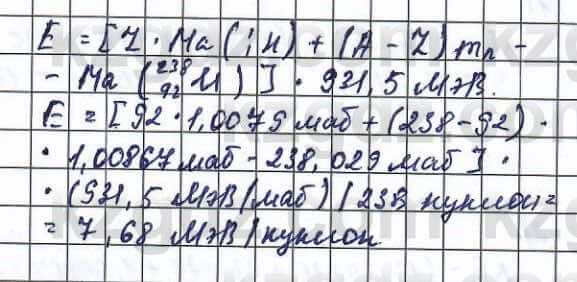 E = [Z · Ma(¦H) + (A - Z) mn -
- Ma (²³⁸₉₂U)] · 931,5 МэВ.
E = [92 · 1,0079 маб + (238 - 92) ·
· 1,00867 маб - 238,029 маб] ·
· (931,5 МэВ/маб) / 238 нуклон =
= 7,68 МэВ/нуклон